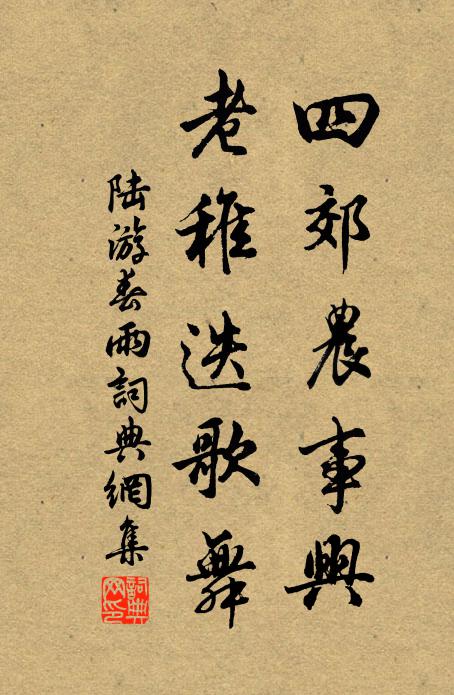 四郊農事興
老稚迭歌舞
陆游春雨詞典網集
詞典
网印